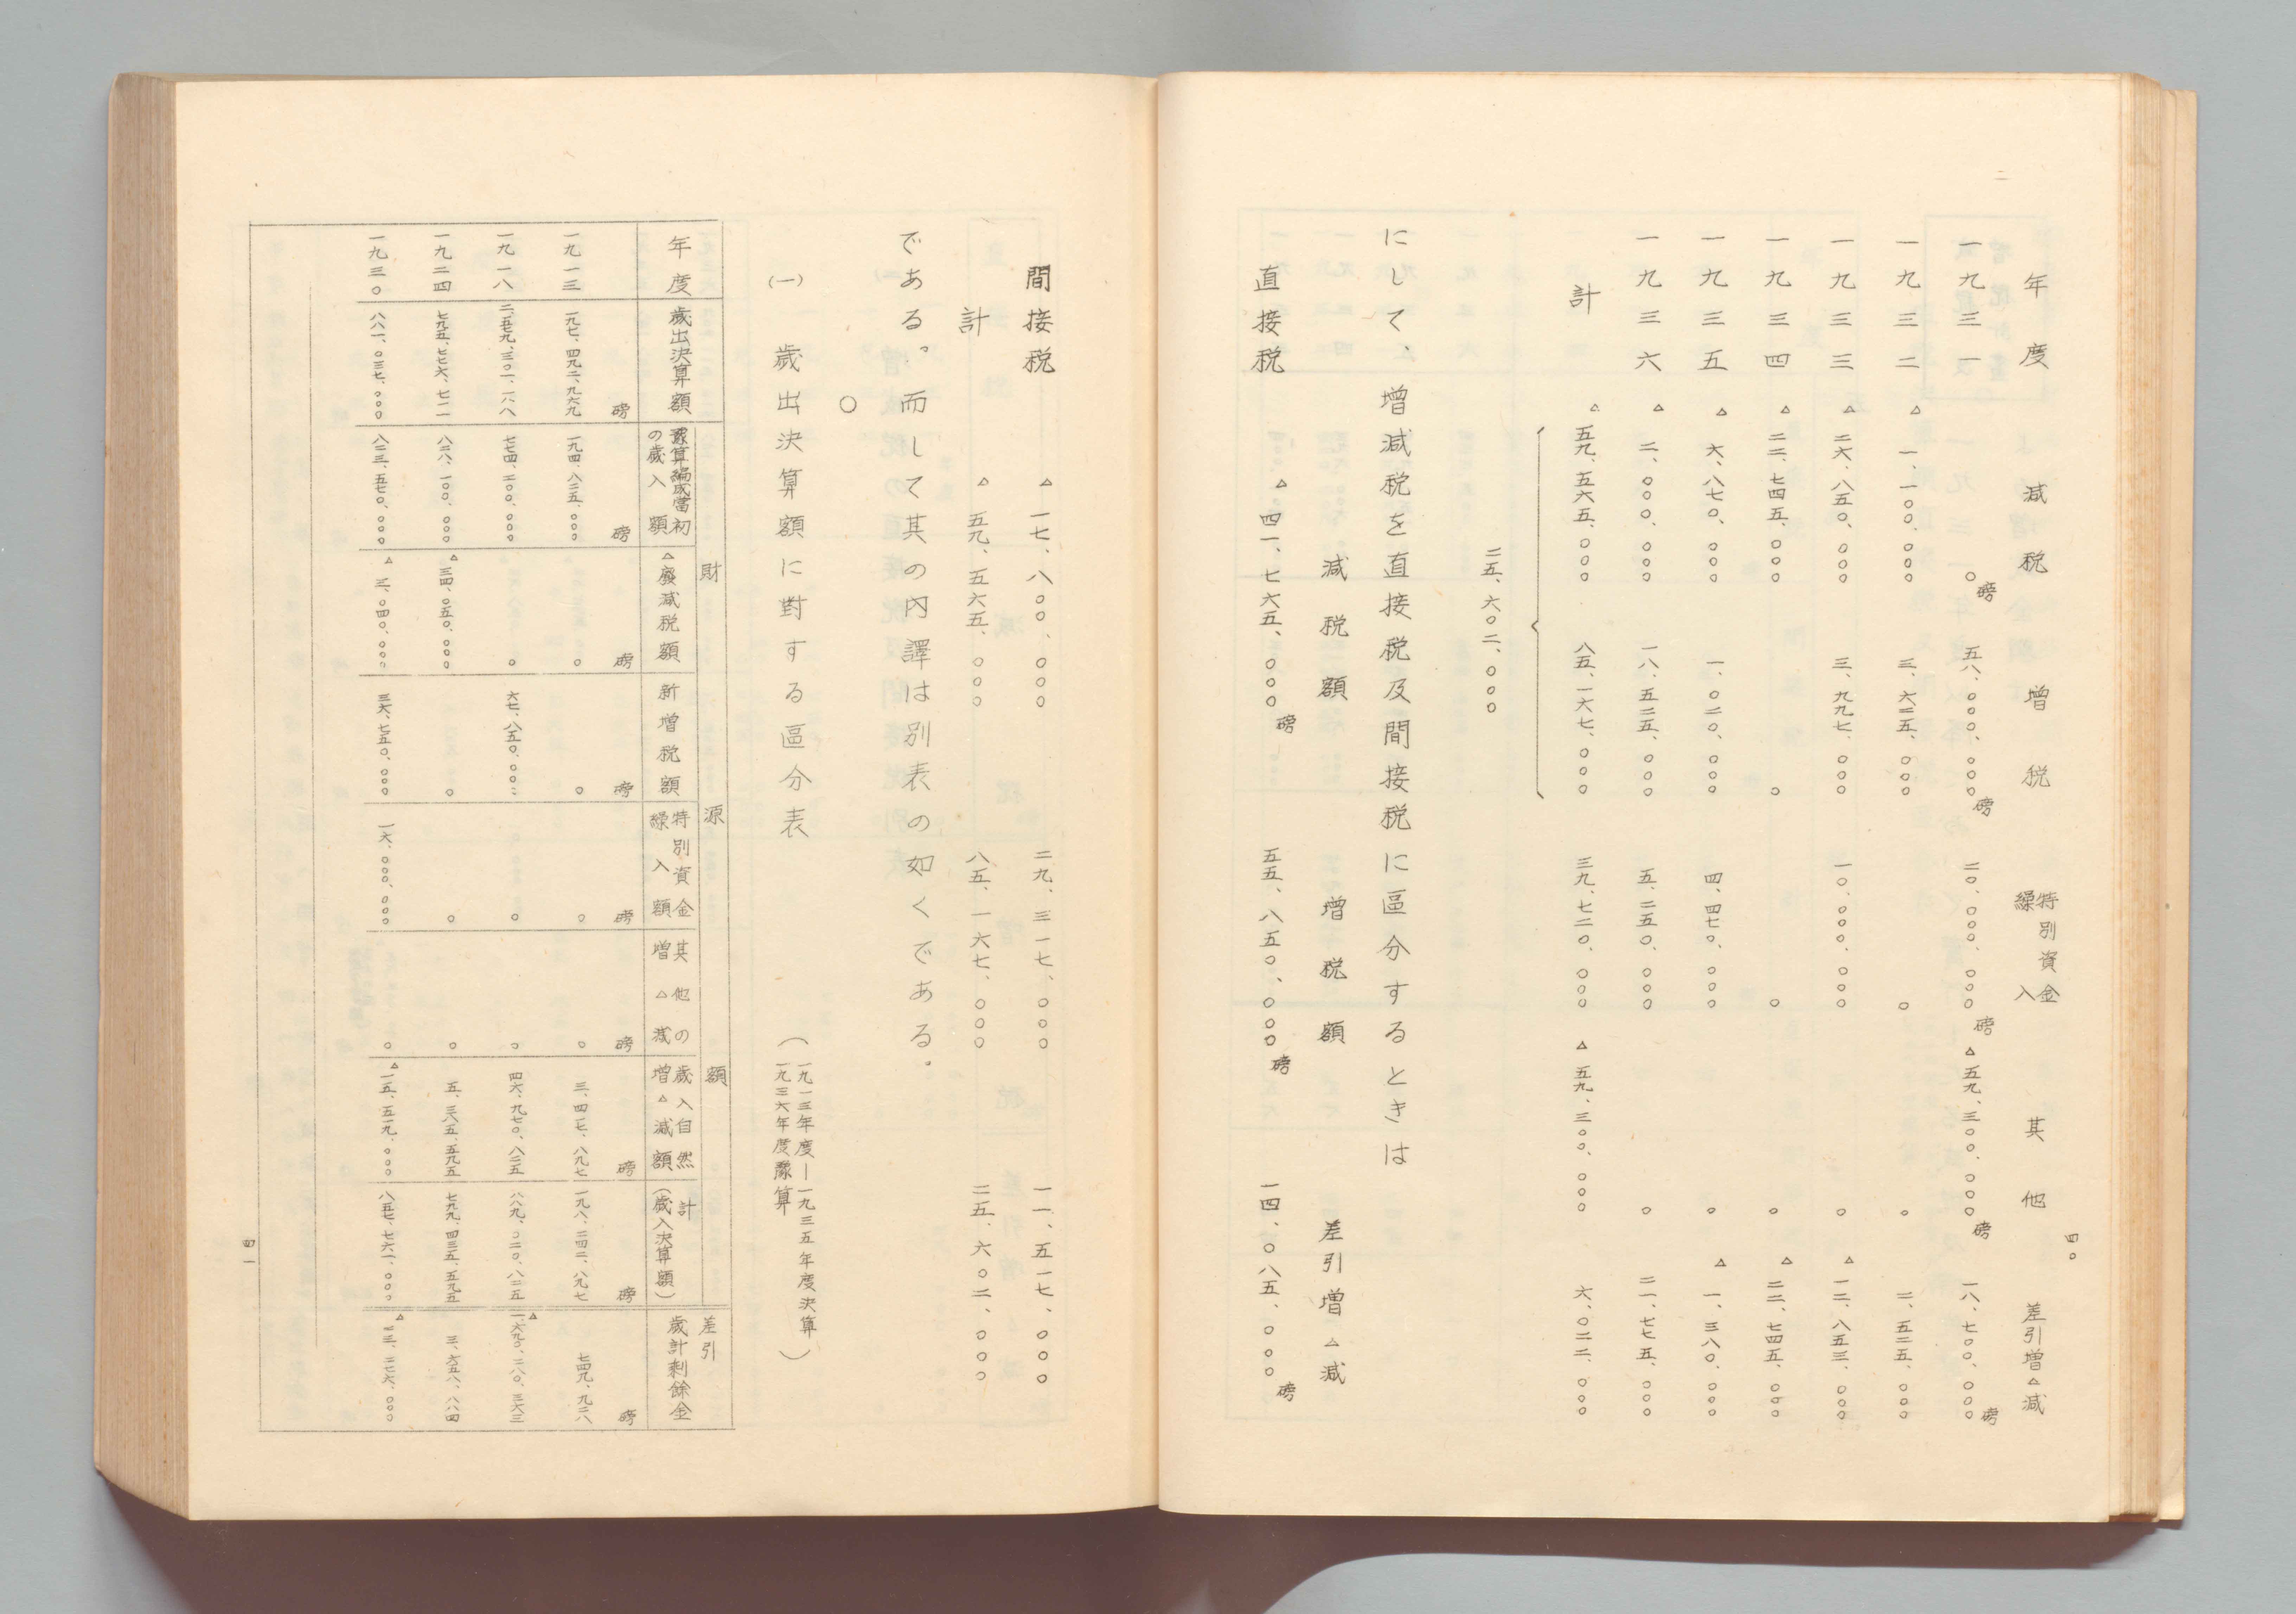 四〇
年度　減税　増税　特別資金繰入　其他　差引増△減
一九三一　〇磅　五八、〇〇〇、〇〇〇磅　二〇、〇〇〇、〇〇〇磅　△五九、三〇〇、〇〇〇磅　一八、七〇〇、〇〇〇磅
一九三二　△一、一〇〇、〇〇〇　三、六二五、〇〇〇　〇　〇　二、五二五、〇〇〇
一九三三　△二六、八五〇、〇〇〇　三、九九七、〇〇〇　一〇、〇〇〇、〇〇〇　〇　△一二、八五三、〇〇〇
一九三四　△二二、七四五、〇〇〇　〇　〇　〇　△二二、七四五、〇〇〇
一九三五　△六、八七〇、〇〇〇　一、〇二〇、〇〇〇　四、四七〇、〇〇〇　〇　△一、三八〇、〇〇〇
一九三六　△二、〇〇〇、〇〇〇　一八、五二五、〇〇〇　五、二五〇、〇〇〇　〇　二一、七七五、〇〇〇
計　△五九、五六五、〇〇〇　八五、一六七、〇〇〇　三九、七二〇、〇〇〇　△五九、三〇〇、〇〇〇　六、〇二二、〇〇〇
二五、六〇二、〇〇〇
にして、増減税を直接税及間接税に區分するときは
減税額　増税額　差引増△減
直接税　△四一、七六五、〇〇〇磅　五五、八五〇、〇〇〇磅　一四、〇八五、〇〇〇磅
間接税　△一七、八〇〇、〇〇〇　二九、三一七、〇〇〇　一一、五一七、〇〇〇
計　△五九、五六五、〇〇〇　八五、一六七、〇〇〇　二五、六〇二、〇〇〇
である。而して其の内譯は別表の如くである。
〇
(一)　歳出決算額に對する區分表　（一九一三年度―一九三五年度決算　一九三六年度豫算）
財源額
年度　歳出決算額　豫算編成當初の歳入額　△廢減税額　新増税額　特別資金繰入額　其他の増△減　歳入自然増△減額　計（歳入決算額）　差引歳計剰餘金
磅　磅　磅　磅　磅　磅　磅　磅　磅
一九一三　一九七、四九二、九六九　一九四、八二五、〇〇〇　〇　〇　〇　〇　三、四一七、八九七　一九八、二四二、八九七　七四九、九二八
一九一八　二、五七九、三〇一、一八八　七七四、二〇〇、〇〇〇　〇　六七、八五〇、〇〇〇　〇　〇　四六、九七〇、八二五　八八九、〇二〇、八二五　△一、六九〇、二八〇、三六三
一九二四　七九五、七七六、七一一　八二八、一〇〇、〇〇〇　△三四、〇五〇、〇〇〇　〇　〇　〇　五、三八五、五九五　七九九、四三五、五九五　三、六五八、八八四
一九三〇　八八一、〇三七、〇〇〇　八二三、五七〇、〇〇〇　△三、〇四〇、〇〇〇　三六、七五〇、〇〇〇　一六、〇〇〇、〇〇〇　〇　△一五、五一九、〇〇〇　八五七、七六一、〇〇〇　△二三、二七六、〇〇〇
四一